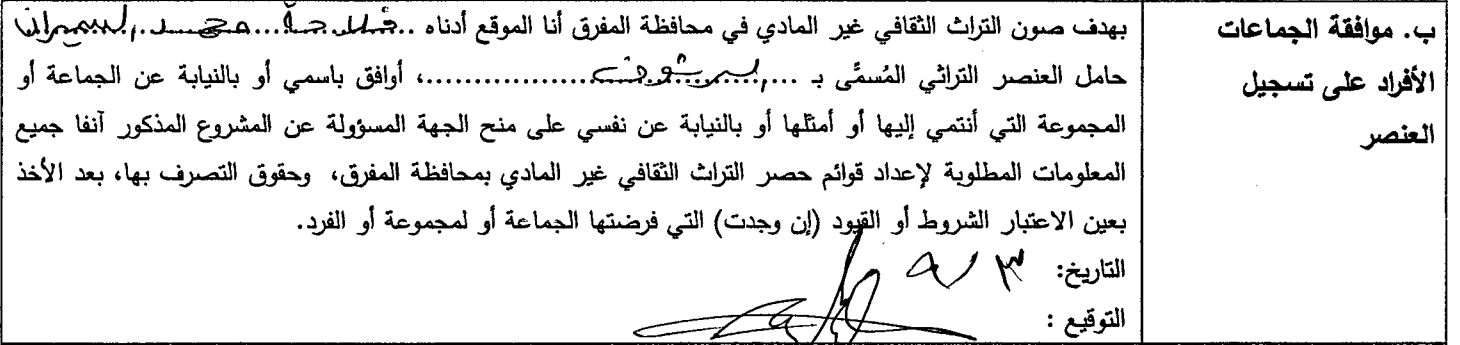 ب. موافقة الجماعات
الأفراد على تسجيل
العنصر
بهدف صون التراث الثقافي غير المادي في محافظة المفرق أنا الموقع أدناه .. محمد
حامل العنصر التراثي المُسمَّى بـ ...................، أوافق باسمي أو بالنيابة عن الجماعة أو
المجموعة التي أنتمي إليها أو أمثلها أو بالنيابة عن نفسي على منح الجهة المسؤولة عن المشروع المذكور آنفا جميع
المعلومات المطلوبة لإعداد قوائم حصر التراث الثقافي غير المادي بمحافظة المفرق، وحقوق التصرف بها، بعد الأخذ
بعين الاعتبار الشروط أو القيود (إن وجدت) التي فرضتها الجماعة أو لمجموعة أو الفرد.
التاريخ: ٣
التوقيع :